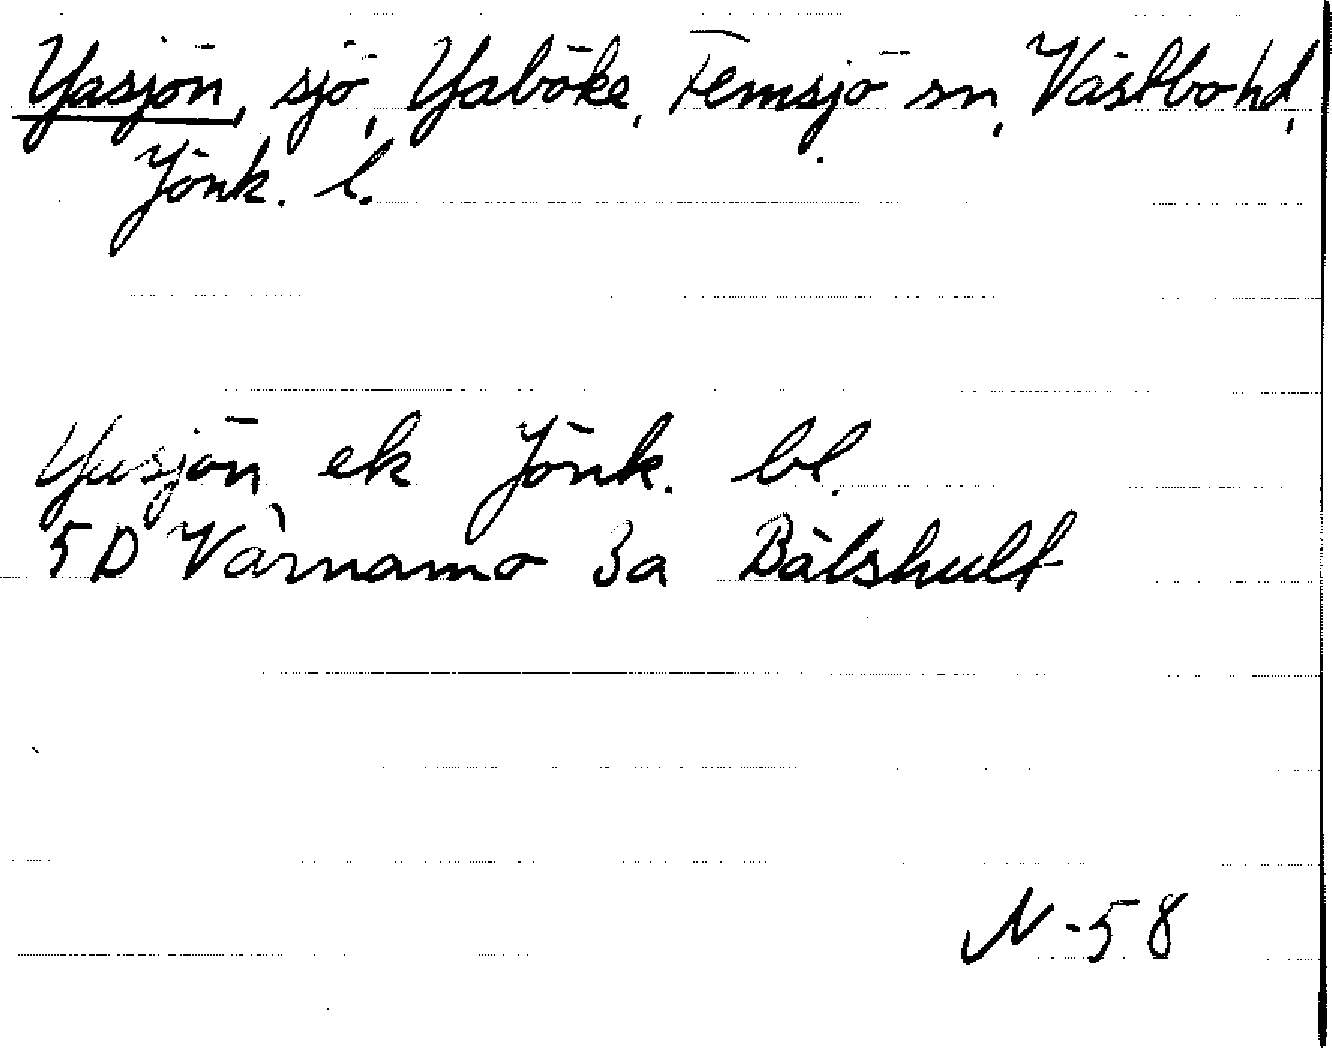 Yasjön, sjö, Yaböke, Femsjö sn, Västbo hd,
Jönk. l.
Yusjön, ek Jönk. bl.
5D Värnamo 3a Bälshult
N-58